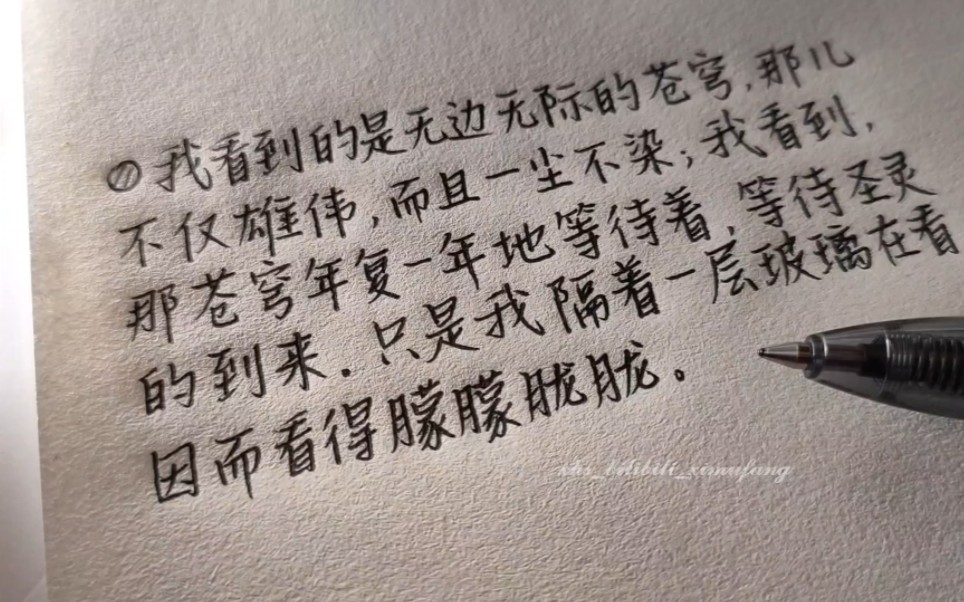 ⑰我看到的是无边无际的苍穹,那儿
不仅雄伟,而且一尘不染;我看到,
那苍穹年复一年地等待着,等待圣灵
的到来。只是我隔着一层玻璃在看
因而看得朦朦胧胧。
xhs_bilibili_ximufang